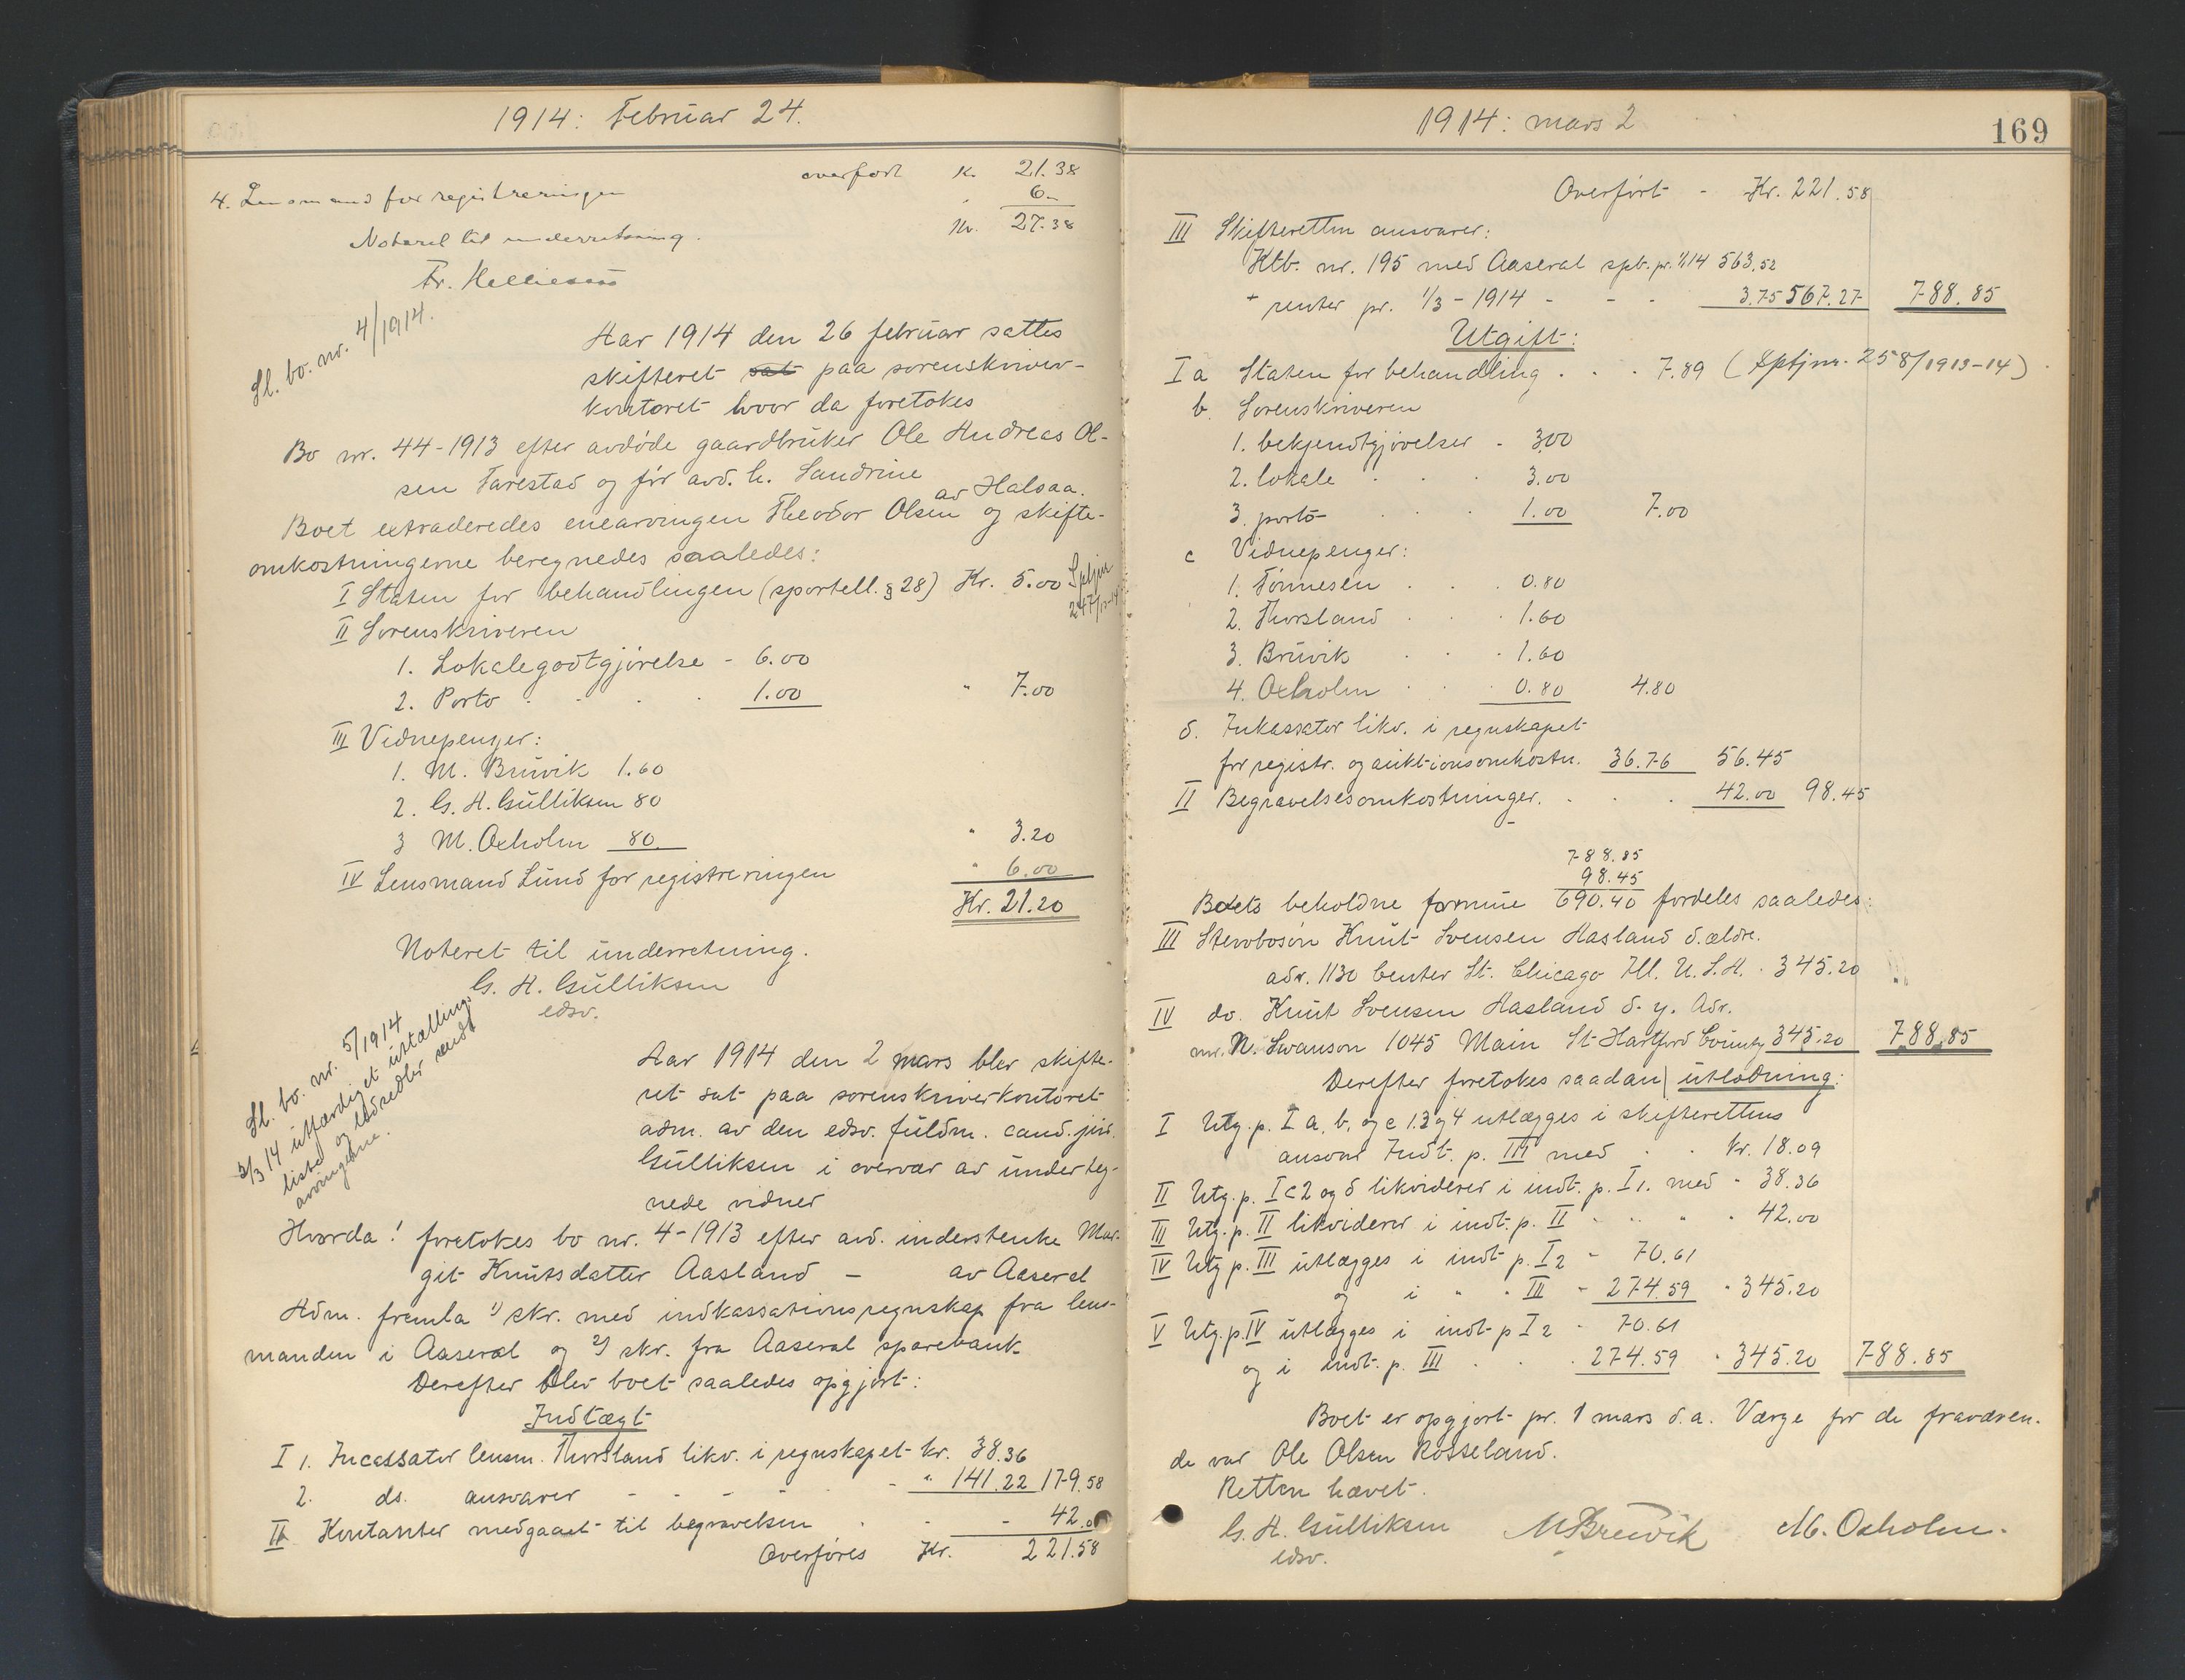 1914: Februar 24.
overført K. 21.38
4. Lensmand for registreringen " 6.-
Kr. 27.38
Noteret til underretning.
Fr. Helliesen
Sl. bo. nr. 4/1914.
Aar 1914 den 26 februar sattes
skifteret sat paa sorenskriver-
kontoret hvor da foretokes
Bo nr. 44-1913 efter avdøde gaardbruker Ole Andreas Ol-
sen Tarestad og før avd. h. Sandrine
av Halsaa.
Boet extraderedes enearvingen Theodor Olsen og skifte-
omkostningerne beregnedes saaledes:
I Staten for behandlingen (sportell. § 28) Kr. 5.00 Sptjnr 247/13-14
II Sorenskriveren
1. Lokalegodtgjørelse - 6.00
2. Porto . . . 1.00 " 7.00
III Vidnepenger:
1. M. Brüvik 1.60
2. G. A. Gulliksen 80
3 M. Oxholm 80. " 3.20
IV Lensmand Lund for registreringen " 6.00
Kr. 21.20
Noteret til underretning.
G. A. Gulliksen
edsv.
Sl. bo. nr. 5/1914
3/3 14 utfærdiget uttællings
liste og lodsedler sendt
arvingerne.
Aar 1914 den 2 mars blev skifte-
ret sat paa sorenskriverkontoret
adm. av den edsv. fuldm. cand. jur.
Gulliksen i overvær av underteg-
nede vidner
Hvorda! foretokes bo nr. 4-1913 efter avd. inderstenke Mar-
git Knutsdatter Aasland - av Aaseral
Adm. fremla 1) skr. med indkassationsregnskap fra lens-
manden i Aaseral og 2) skr. fra Aaseral sparebank
Derefter blev boet saaledes opgjort:
Indtægt
I 1. Incassator lensm. Thorsland likv. i regnskapet kr. 38.36
2. ds. ansvarer - - - - " 141.22 179.58
II Kontanter medgaaet til begravelsen . - - 42.00
Overføres Kr. 221.58
1914: mars 2
169
Overført - Kr. 221.58
III Skifteretten ansvarer:
Ktb. nr. 195 med Aaseral spb. pr. 1/1 14 563.52
+ renter pr. 1/3 - 1914 - - - 3.75 567.27 788.85
Utgift:
I a Staten for behandling . . . 7.89 (Sptjnr. 258/1913-14)
b. Sorenskriveren
1. bekjendtgjørelser - 3.00
2. lokale . . . 3.00
3. porto . . . 1.00 7.00
c Vidnepenger:
1. Tønnesen . . . 0.80
2. Thorsland . . . 1.60
3. Brüvik . . . 1.60
4. Oxholm . . . 0.80 4.80
d. Inkassator likv. i regnskapet
for registr. og auktionsomkostn. 36.76 56.45
II Begravelsesomkostninger. . . . 42.00 98.45
788.85
98.45
Boets beholdne formue 690.40 fordeles saaledes:
III Stervbosøn Knut Svensen Aasland d. ældre.
adr. 1130 Center St. Chicago Ill. U.S.A. . 345.20
IV do. Knut Svensen Aasland d. y. Adr.
mr. N. Swanson 1045 Main St Hartford County 345.20 788.85
Derefter foretokes saadan utlodning:
I Utg. p. I a, b, og c 1.3 og 4 utlægges i skifterettens
ansvar Indt. p. III med . . kr. 18.09
II Utg. p. I c 2 og d likviderer i indt. p. I 1. med " 38.36
III Utg. p. II likviderer i indt. p. II . . " . 42.00
IV Utg p. III utlægges i indt p. I 2 - 70.61
og i " " III - 274.59 " 345.20
V Utg. p. IV utlægges i indt p I 2 - 70.61
og i indt. p. III . . . 274.59 " 345.20 788.85
Boet er opgjort pr. 1 mars d.a. Værge for de fraværen-
de var Ole Olsen Rosseland.
Retten hævet.
G. A. Gulliksen M Brüvik M. Oxholm.
edsv.